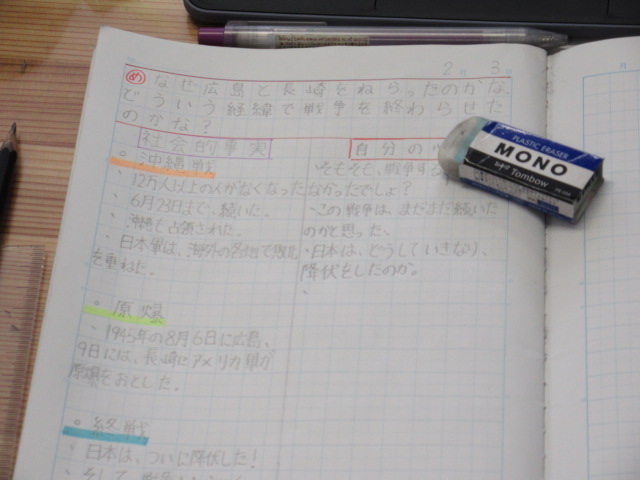 2月 3日
月
め なぜ広島と長崎をねらったのかな
どういう経緯で戦争を終わらせた
のかな?
社会的事実
自分の
沖縄戦
・12万人以上の人がなくなった
・6月23日まで、続いた。
・沖縄も占領された。
・日本軍は、海外の各地で敗北
を重ねた。
・そもそも、戦争する
なかったでしょ?
・この戦争は、まだまだ続いた
のかと思った。
・日本は、どうしていきなり、
降伏をしたのか。
原爆
・1945年の8月6日に広島、
9日には、長崎にアメリカ軍が
原爆をおとした。
終戦
・日本は、ついに降伏した!
・そして
PLASTIC ERASER
MONO
Tombow